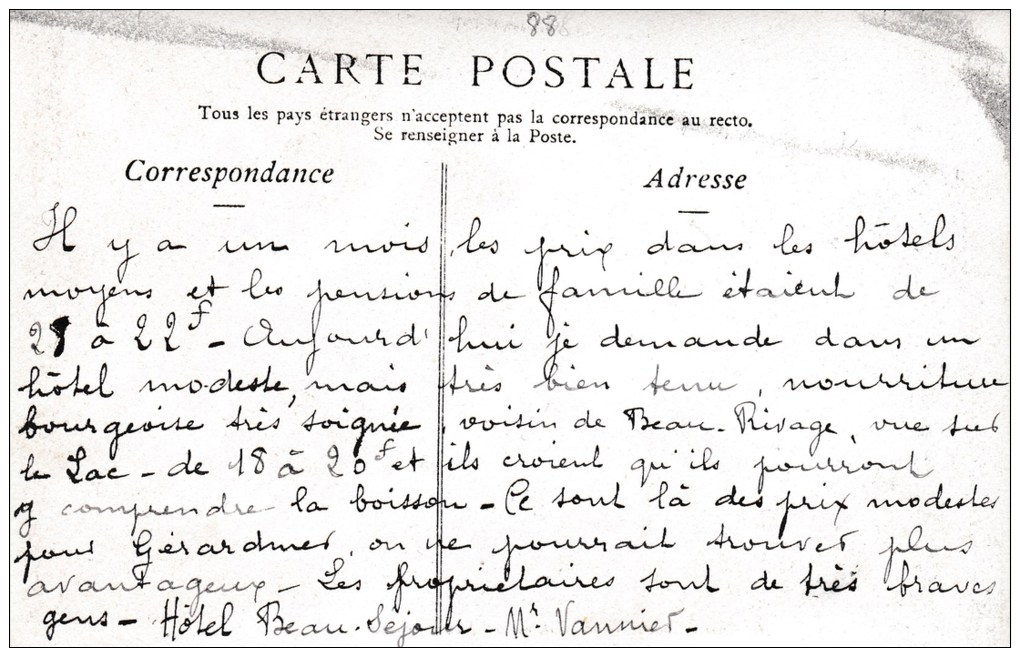 88
CARTE POSTALE
Tous les pays étrangers n'acceptent pas la correspondance au recto.
Se renseigner à la Poste.
Correspondance
Adresse
Il y a un mois, les prix dans les hôtels
moyens et les pensions de famille étaient de
à 22f - Aujourd'hui je demande dans un
hôtel modeste, mais très bien tenu, nourriture
bourgeoise très soignée, voisin de Beau-Rivage, vue sur
le Lac - de 18 à 20f et ils croient qu'ils pourront
y comprendre la boisson - Ce sont là des prix modestes
pour Gérardmer, on ne pourrait trouver plus
avantageux - Les propriétaires sont de très braves
gens - Hôtel Beau-Séjour - Mr Vannier -